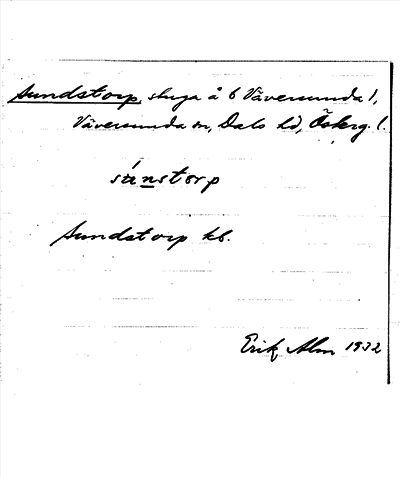 Sundstorp, stuga å 6 Väversunda 1,
Väversunda sn, Dals hd, Österg. l.
sú̱nstorp
Sundstorp kb.
Erik Alm 1932